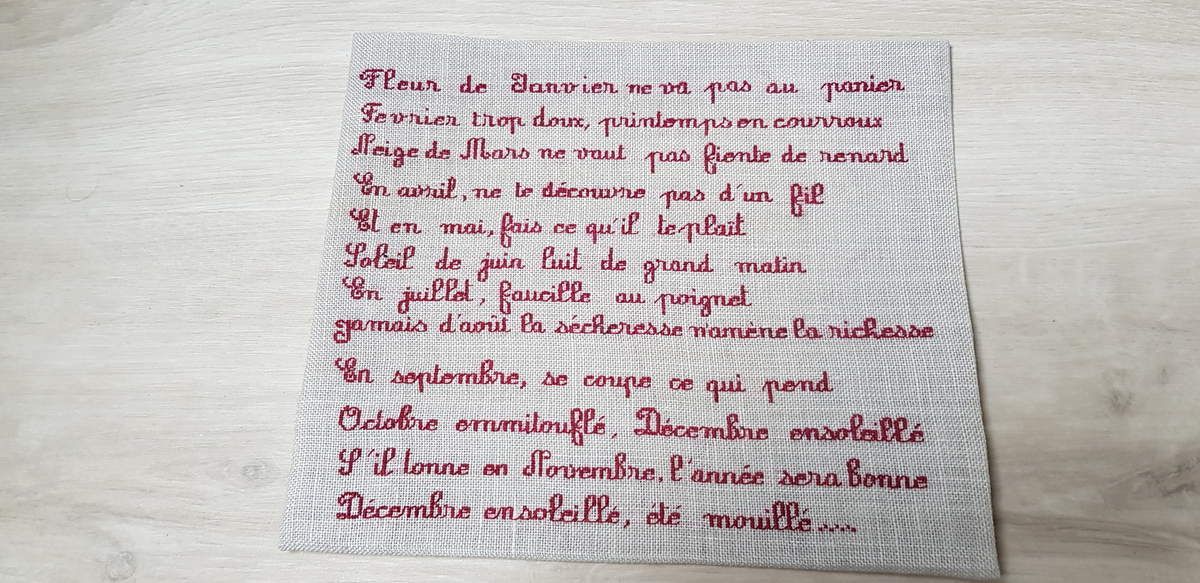 Fleur de Janvier ne va pas au panier
Fevrier trop doux, printemps en courroux
Neige de Mars ne vaut pas fiente de renard
En avril, ne te découvre pas d'un fil
Et en mai, fais ce qu'il te plaît
Soleil de juin luit de grand matin
En juillet, faucille au poignet
Jamais d'août la sécheresse n'amène la richesse
En septembre, se coupe ce qui pend
Octobre emmitouflé, Décembre ensoleillé
S'il tonne en Novembre, l'année sera bonne
Décembre ensoleillé, été mouillé.....